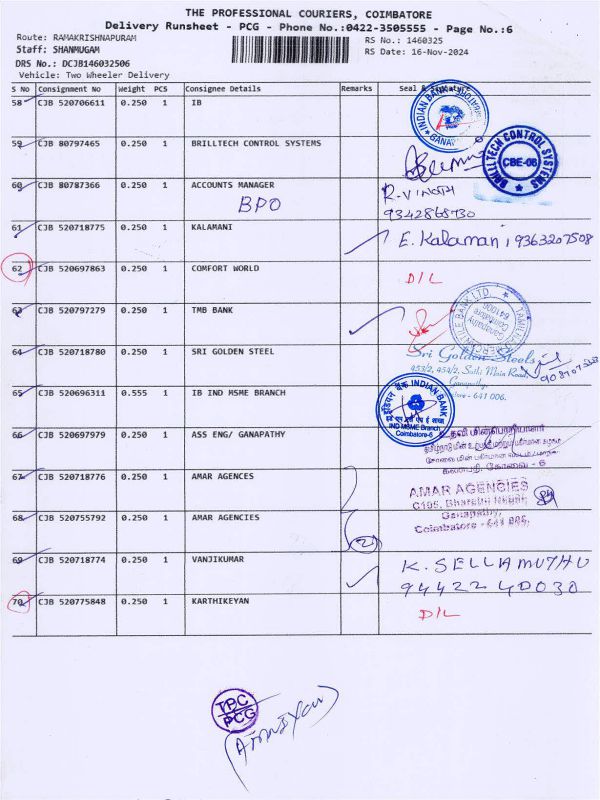 THE PROFESSIONAL COURIERS, COIMBATORE
Delivery Runsheet - PCG - Phone No.:0422-3505555 - Page No.:6
Route: RAMAKRISHNAPURAM
RS No.: 1460325
Staff: SHANMUGAM
RS Date: 16-Nov-2024
DRS No.: DCJB146032506
Vehicle: Two Wheeler Delivery
S No Consignment No Weight PCS Consignee Details Remarks Seal &
58 CJB 520706611 0.250 1 IB
INDIAN BANK
59 CJB 80797465 0.250 1 BRILLTECH CONTROL SYSTEMS
BRILLTECH CONTROL SYSTEMS
CBE-06
60 CJB 80787366 0.250 1 ACCOUNTS MANAGER
BPO
R.VINOTH
9342868730
61 CJB 520718775 0.250 1 KALAMANI
E. Kalamani 9363207508
62 CJB 520697863 0.250 1 COMFORT WORLD D/L
63 CJB 520797279 0.250 1 TMB BANK
Ganapathy
Coimbatore
641006
64 CJB 520718780 0.250 1 SRI GOLDEN STEEL
Sri Golden Steels
453/2, 454/2, Sathi Main Road,
Ganapathy,
- 641 006.
65 CJB 520696311 0.555 1 IB IND MSME BRANCH
इंडियन बैंक INDIAN BANK
IND MSME Branch
Coimbatore-6
66 CJB 520697979 0.250 1 ASS ENG/ GANAPATHY
உதவி மின்பொறியாளர்
கணபதி, கோவை - 6
67 CJB 520718776 0.250 1 AMAR AGENCES
68 CJB 520755792 0.250 1 AMAR AGENCIES
(2)
AMAR AGENCIES
Ganapathy,
Coimbatore - 641 006.
69 CJB 520718774 0.250 1 VANJIKUMAR
K. SELLAMUTHU
94422 40030
70 CJB 520775848 0.250 1 KARTHIKEYAN D/L
TPC
PCG